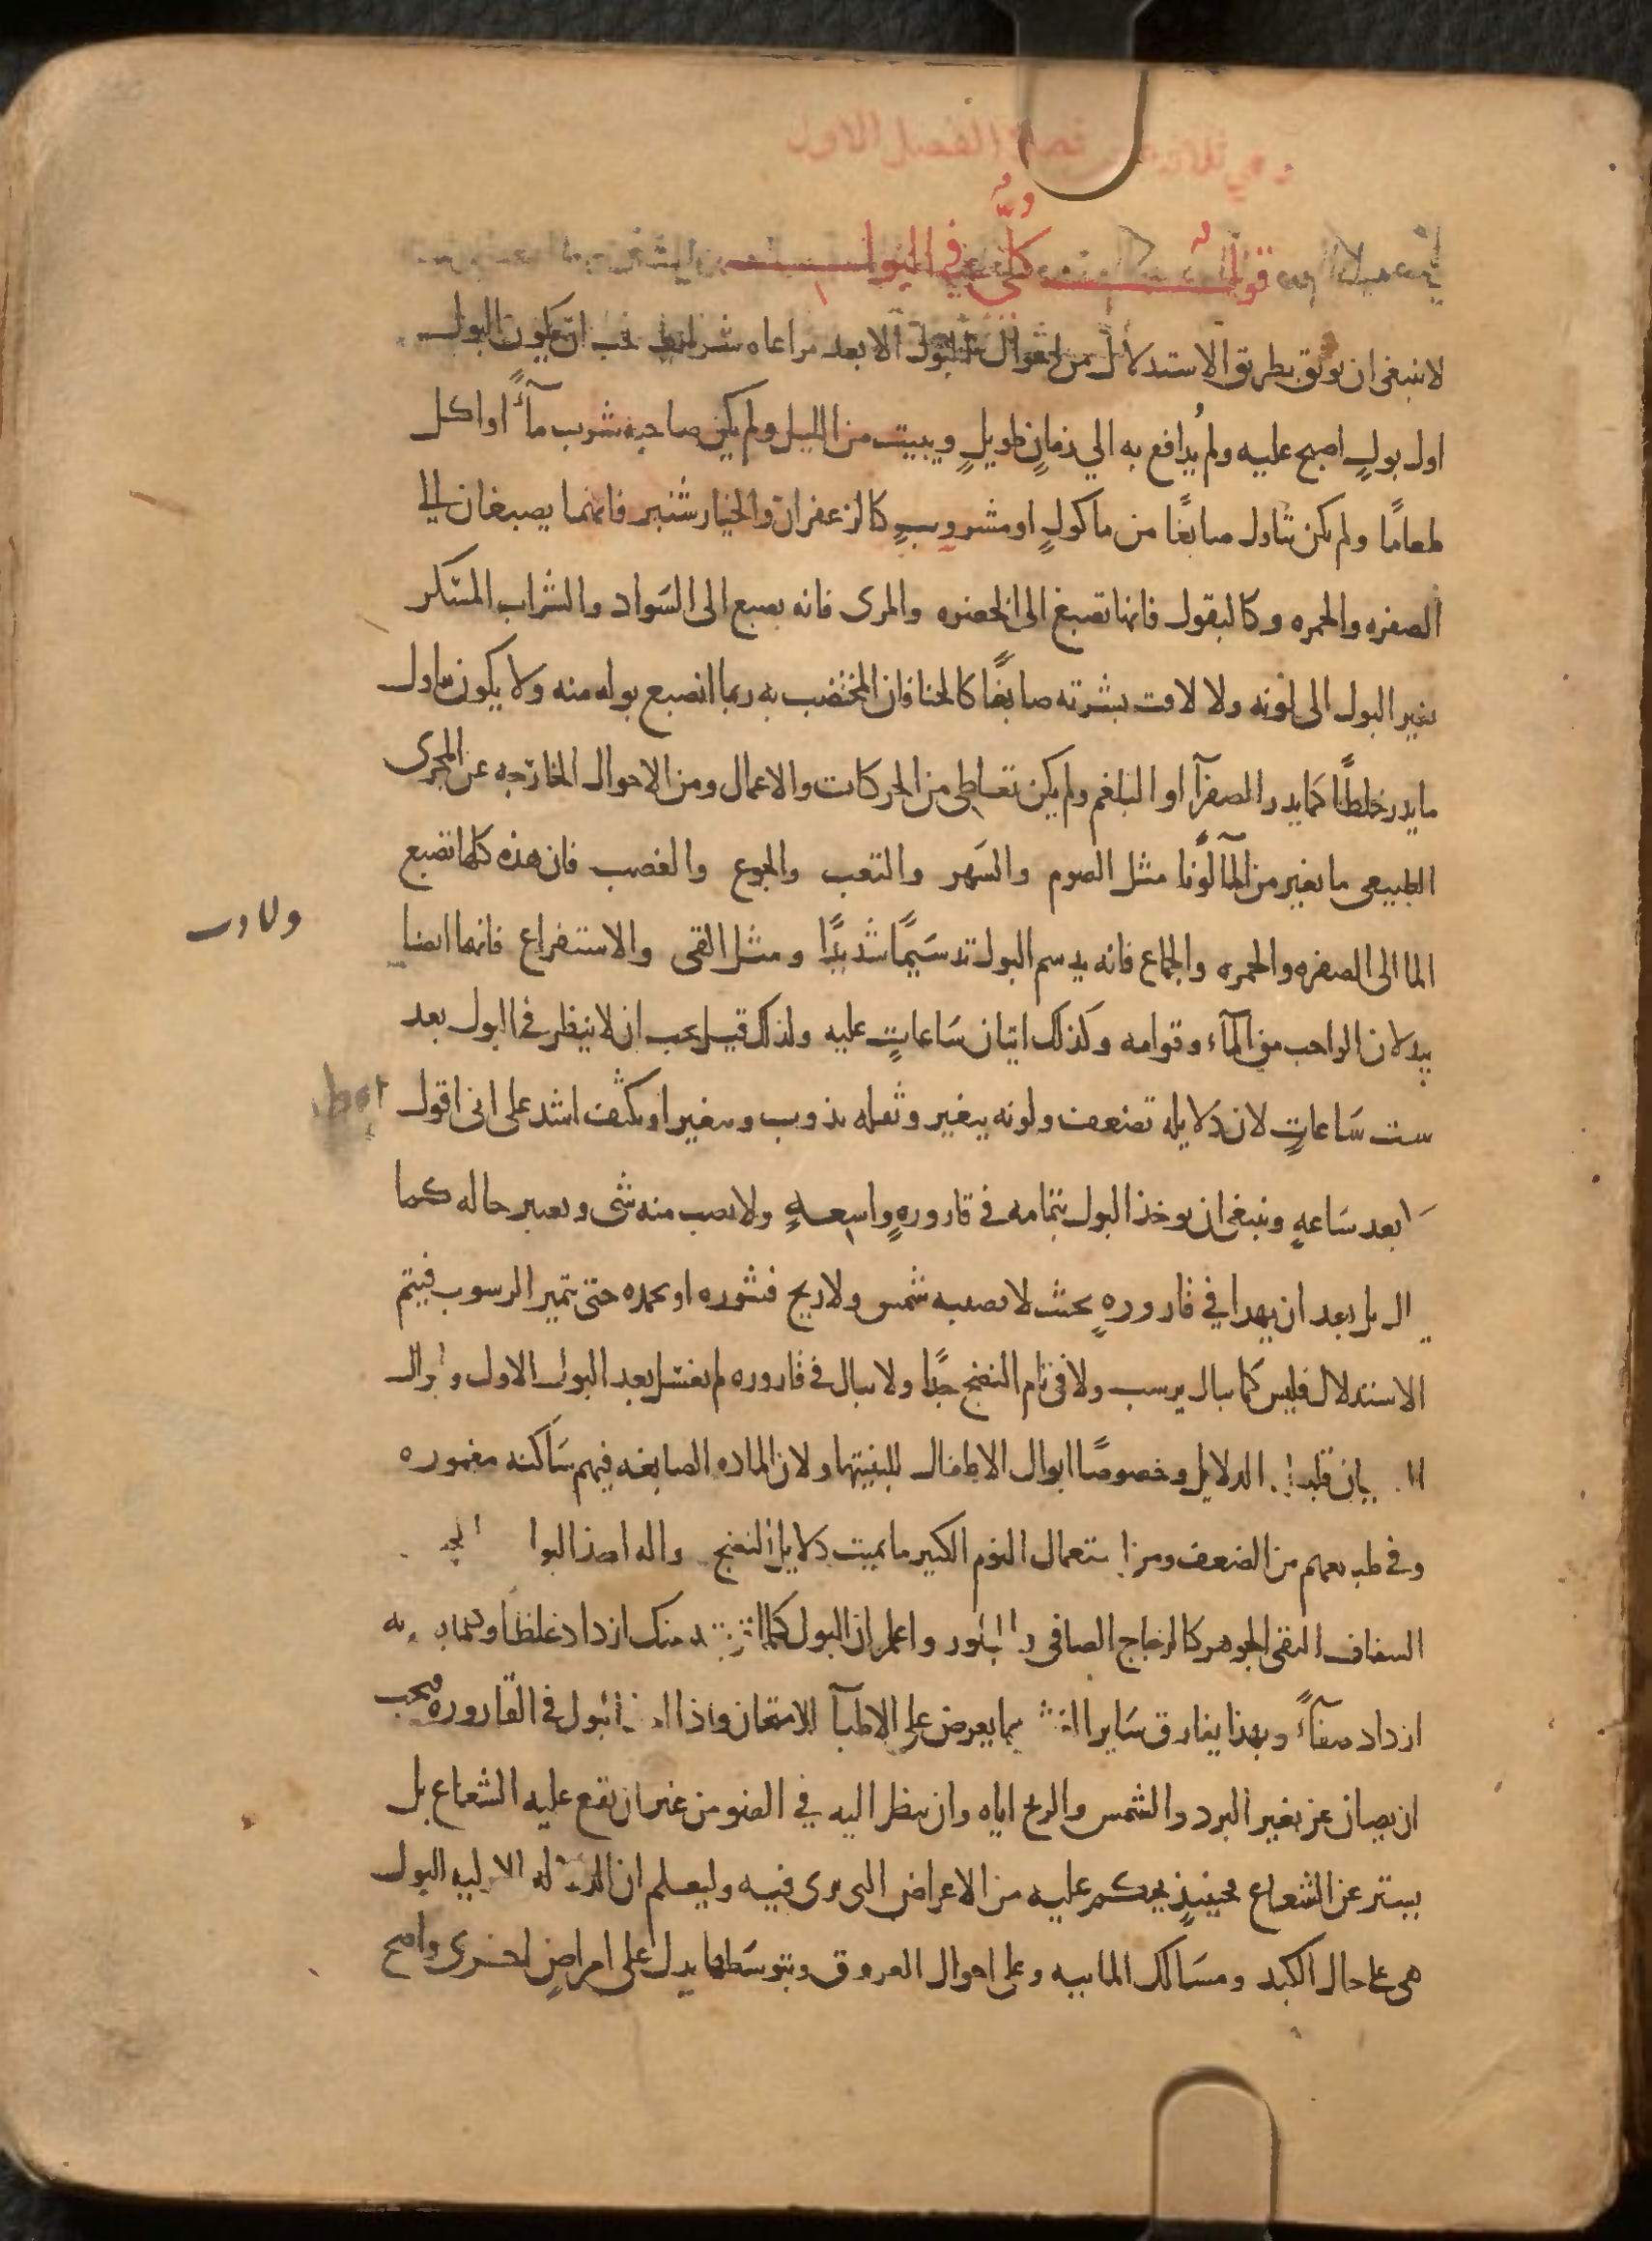 وهي ثلاثة عشر فصلا الفصل الاول
قول كلي في البول
لا ينبغي ان يوثق بطريق الاستدلال من احوال البول الا بعد مراعاه شرايط يجب ان يكون البول
اول بولٍ اصبح عليه ولم يُدافع به الي زمانٍ طويلٍ ويبيت من الليل ولم يكن صاحبه شرب مآءً او اكل
طعامًا ولم يكن تناول صابغًا من ماكولٍ او مشروبٍ كالزعفران والخيار شنبر فانهما يصبغان الي
الصفره والحمره وكالبقول فانها تصبغ الى الخضره والمرى فانه يصبع الى السَواد والشراب المسكر
يغير البول الى لونه ولا لاقت بشرته صابغًا كالحنا فان المختضب به ربما انصبع بوله منه ولا يكون تناول
ما يدر خلطًا كما يدر الصفرآ او البلغم ولم يكن تعاطي من الحركات والاعمال ومن الاحوال الخارجه عن المجرى
الطبيعي ما يغير من المآ لونًا مثل الصوم والسَهر والتعب والجوع والغضب فان هذه كلها تصبع
الما الى الصفره والحمره والجماع فانه يدسم البول تدسَيمًا شديدًا ومثل القى والاستفراغ فانهما ايضا
يبدلان الواجب من المآء وقوامه وكذلك اتيان سَاعاتٍ عليه ولذلك قيل يجب ان لا ينظر في البول بعد
ست سَاعاتٍ لان دَلايله تضعف ولونه يتغير وثفله يذوب ويتغير او يكثف اشد على انى اقول
ولا بعد سَاعهٍ وينبغي ان يوخذ البول بتمامه في قارورهٍ واسعهٍ ولا يصب منه شى ويعتبر حاله كما
يبال بل بعد ان يهدا في قارورهٍ بحيث لا يصيبه شمس ولا ريح فيثوره او يجمده حتى يتميز الرسوب فيتم
الاستدلال فليس كما يبال يرسب ولا في تام النضج جدًا ولا يبال في قاروره لم يغسل بعد البول الاول وابوال
الصبيان قليله الدلايل وخصوصًا ابوال الاطفال للبنيتها ولان الماده الصابغه فيهم سَاكنه مغموره
وفي طبايعهم من الضعف ومن استعمال النوم الكثير ما يميت دلايل النضج واله اخذ البول
الشفاف النقي الجوهر كالزجاج الصافى والبلور واعلم ان البول كلما قربته منك ازداد غلظًا وكلما بعدته
ازداد صفآءً وبهذا يفارق سَاير الغش مما يعرض على الاطبآ للامتحان واذا اخذ البول في القاروره فيجب
ان يصان عن تغير البرد والشمس والريح اياه وان ينظر اليه في الضو من غير ان يقع عليه الشعاع بل
يستتر عن الشعاع فحينيذٍ يحكم عليه من الاعراض التى ترى فيه وليعلم ان الدلاله الاوليه للبول
هى على حال الكبد ومسَالك الماييه وعلى احوال العروق وبتوسَطها يدل على امراضٍ اخرى واصح